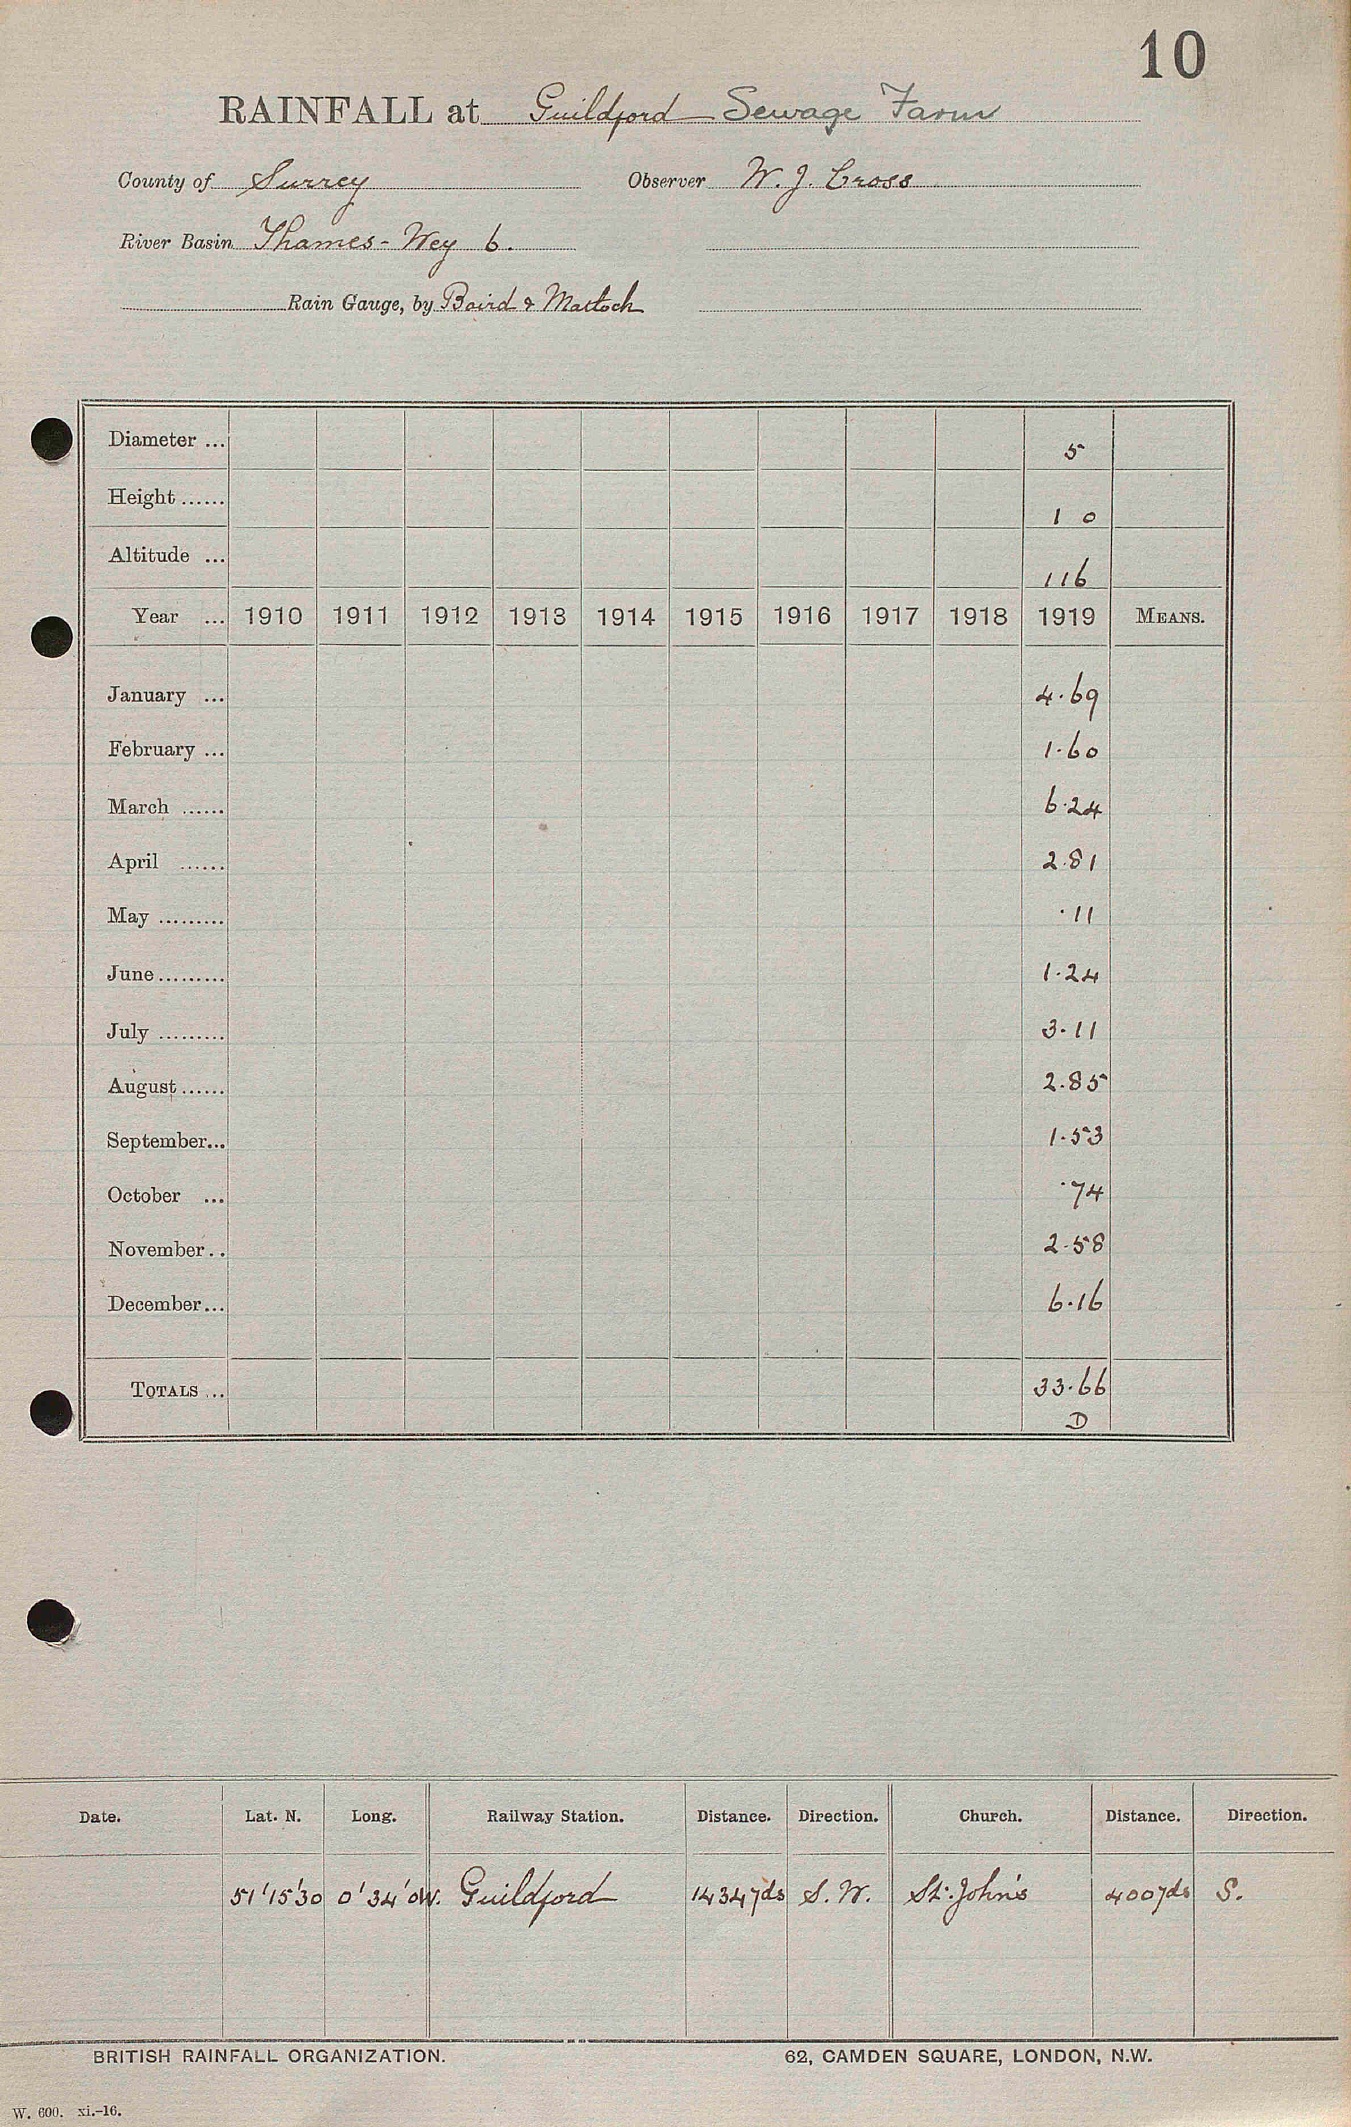 10
RAINFALL at Guildford Sewage Farm
County of Surrey Observer W. J. Cross
River Basin Thames - Wey 6.
Rain Gauge, by Baird & Matlock
Diameter ... 5
Height ...... 1 0
Altitude ... 116
Year ... 1910 1911 1912 1913 1914 1915 1916 1917 1918 1919 MEANS.
January ... 4.69
February ... 1.60
March ...... 6.24
April ...... 2.81
May ......... .11
June ......... 1.24
July ......... 3.11
August ...... 2.85
September... 1.53
October ... .74
November .. 2.58
December ... 6.16
TOTALS ... 33.66
D
Date. Lat. N. Long. Railway Station. Distance. Direction. Church. Distance. Direction.
51'15'30 0'34'0W. Guildford 1434yds S. W. St. John's 400yds S.
BRITISH RAINFALL ORGANIZATION. 62, CAMDEN SQUARE, LONDON, N.W.
W. 600. xi.-16.